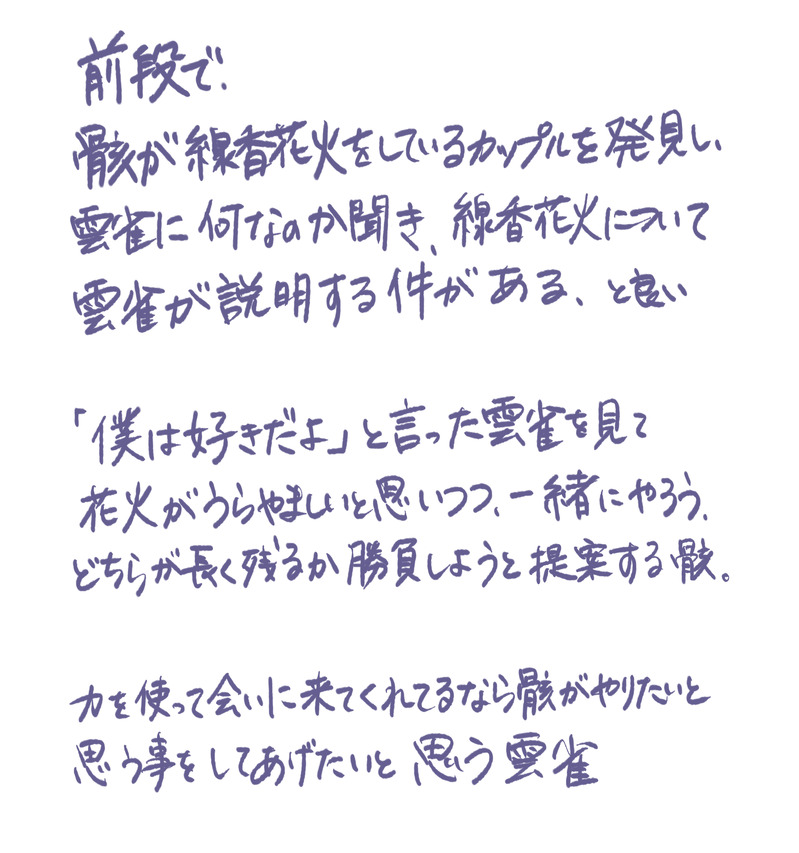 前段で、
骸が線香花火をしているカップルを発見し、
雲雀に何なのか聞き、線香花火について
雲雀が説明する件がある、と良い
「僕は好きだよ」と言った雲雀を見て
花火がうらやましいと思いつつ、一緒にやろう、
どちらが長く残るか勝負しようと提案する骸。
力を使って会いに来てくれてるなら骸がやりたいと
思う事をしてあげたいと思う雲雀